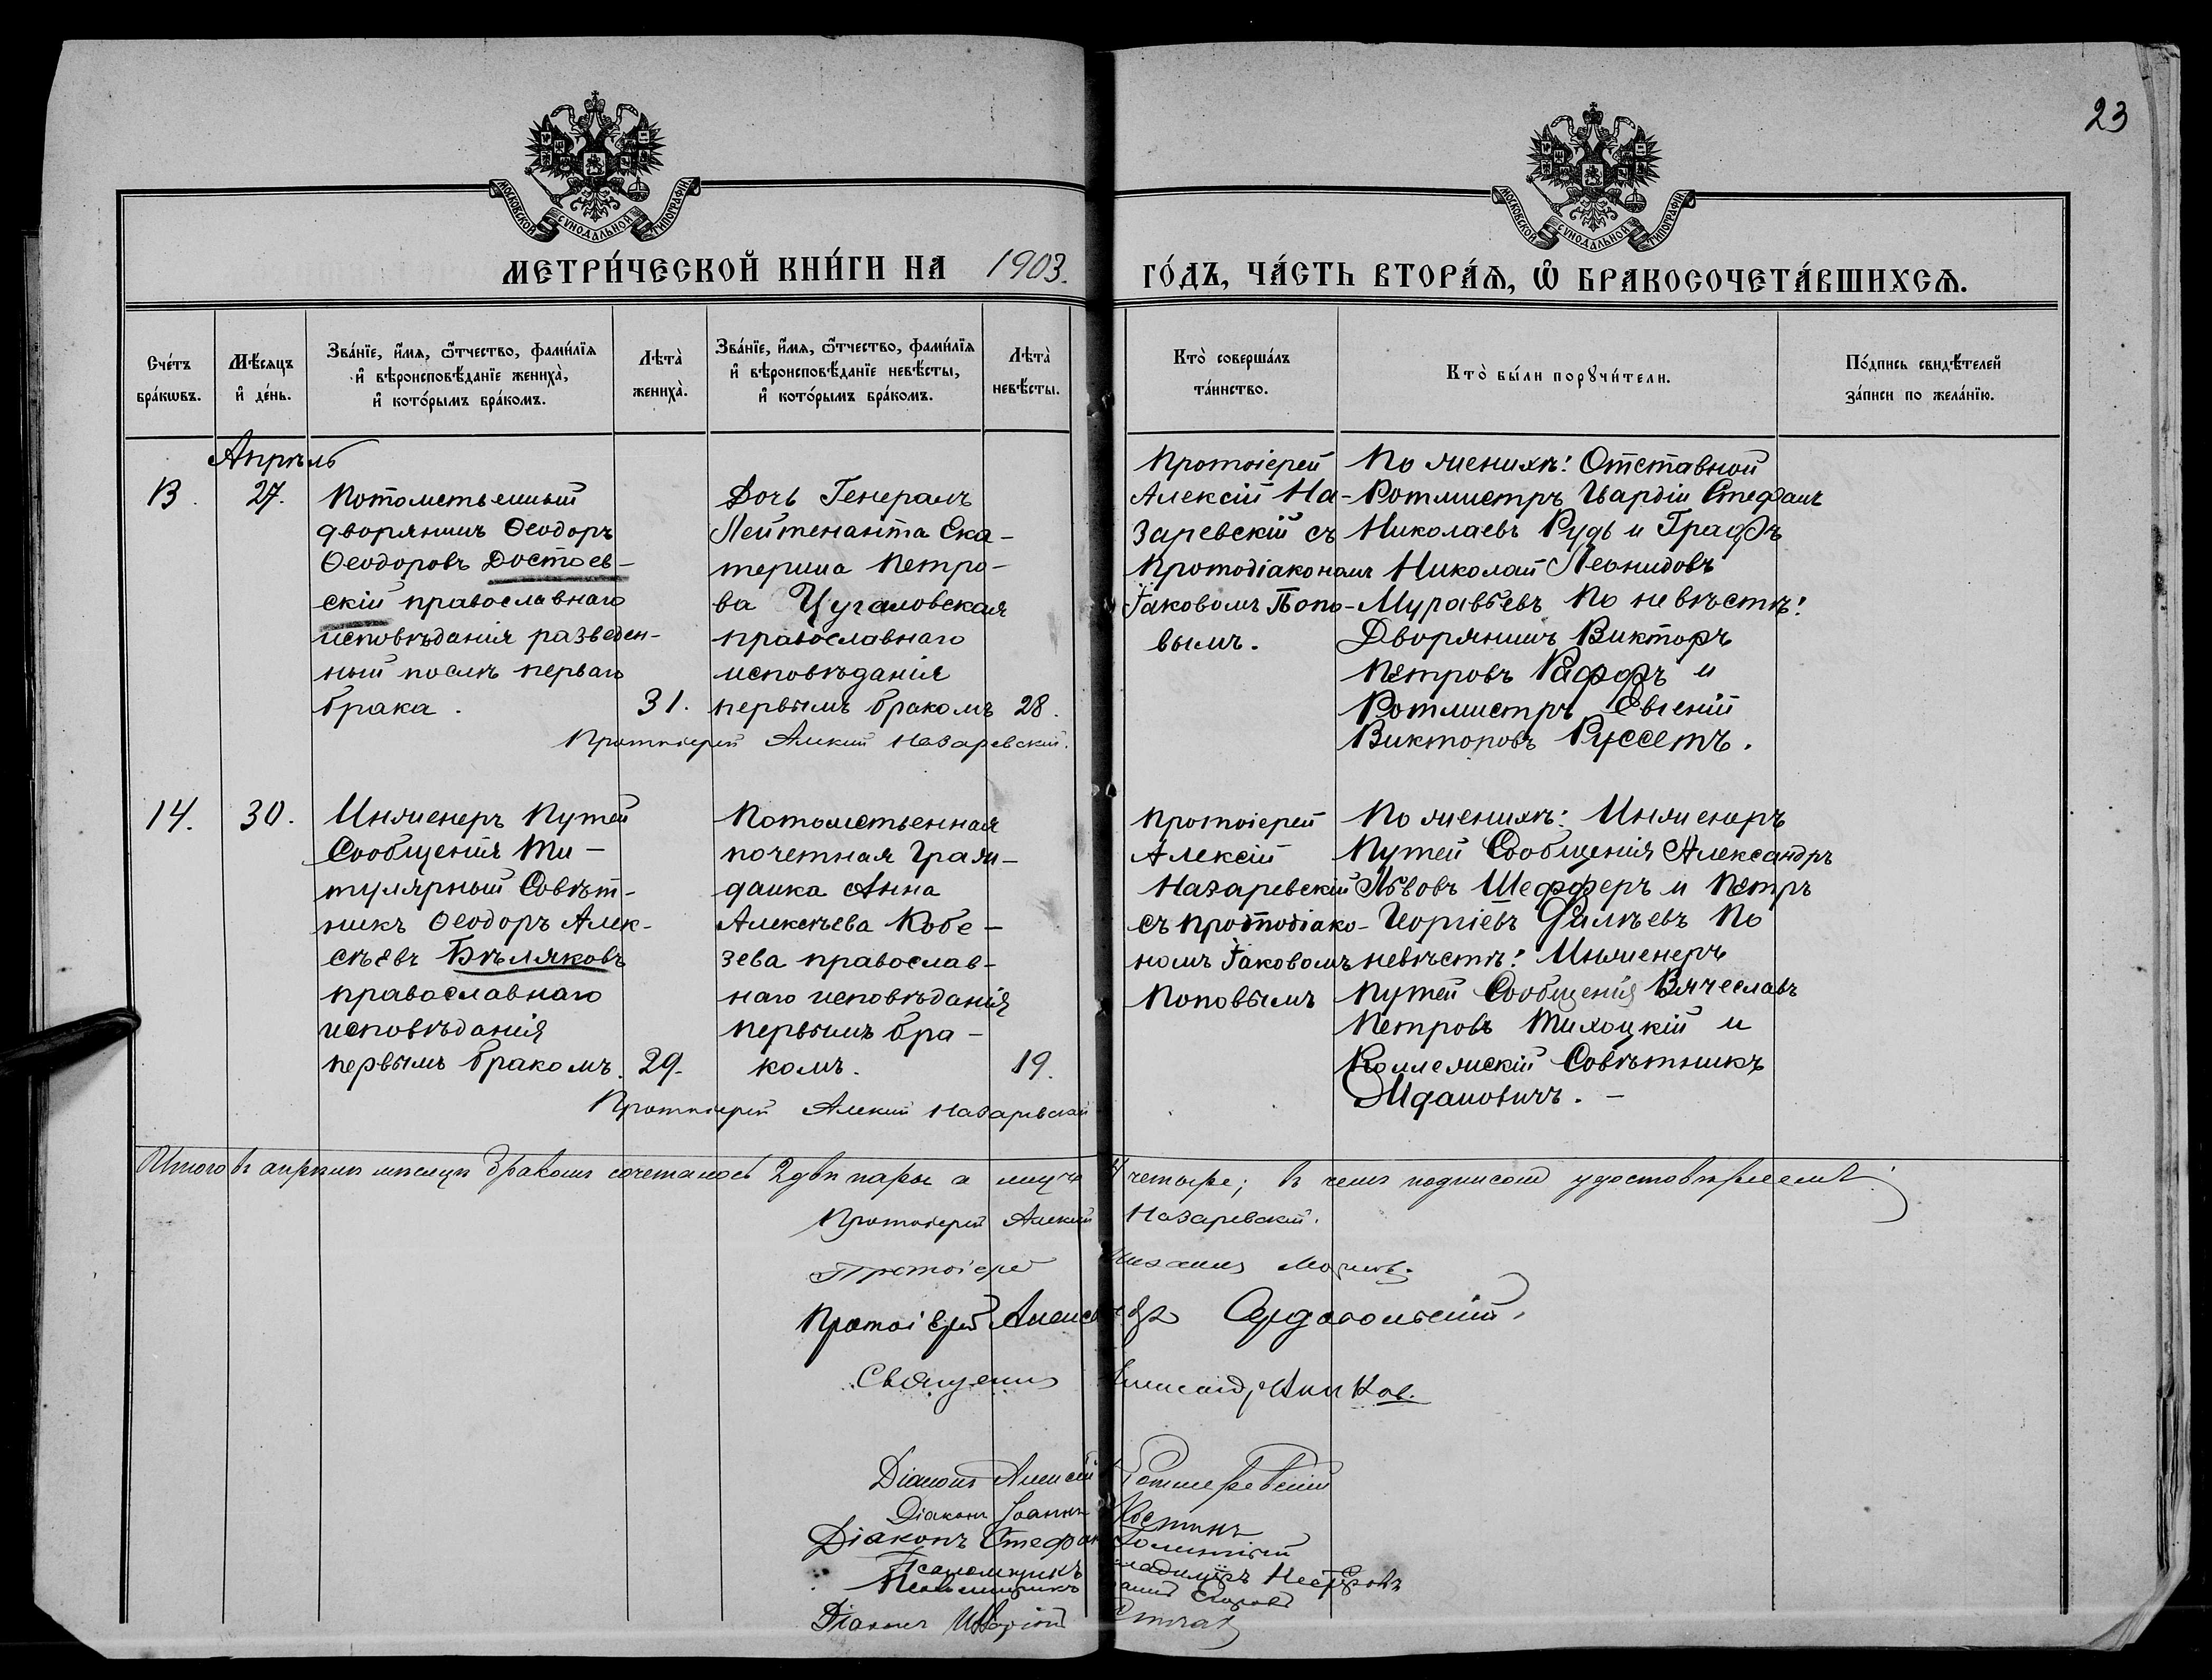 23
МОСКОВСКОЙ СѴНОДАЛЬНОЙ ТИПОГРАФІИ
МОСКОВСКОЙ СѴНОДАЛЬНОЙ ТИПОГРАФІИ
МЕТРИ́ЧЕСКОЙ КНИ́ГИ НА 1903. ГО́ДЪ, ЧА́СТЬ ВТОРА́Ѧ, Ѽ БРАКОСОЧЕТА́ВШИХСѦ.
Сче́тъ
бра́кѡвъ.
Мѣ́сѧцъ
и҆ де́нь.
Зва́нїе, и҆́мѧ, ѻ҆́тчество, фами́лїѧ
и҆ вѣроисповѣ́данїе жениха̀,
и҆ кото́рымъ бра́комъ.
Лѣта̀
жениха̀.
Зва́нїе, и҆́мѧ, ѻ҆́тчество, фами́лїѧ
и҆ вѣроисповѣ́данїе невѣ́сты,
и҆ кото́рымъ бра́комъ.
Лѣта̀
невѣ́сты.
Кто̀ соверша́лъ
та́инство.
Кто̀ бы́ли порꙋчи́тели.
По́дпись свидѣ́телей
за́писи по жела́нїю.
Апрѣль
13. 27.
Потомственный
дворянинъ Ѳеодоръ
Ѳеодоровъ Достоев-
скій православнаго
исповѣданія разведен-
ный послѣ перваго
брака. 31.
Дочь Генералъ
Лейтенанта Ека-
терина Петро-
ва Цугаловская
православнаго
исповѣданія
первымъ бракомъ 28.
Протоіерей Алексій Назаревскій.
Протоіерей
Алексій На-
заревскій съ
Протодіакономъ
Іаковомъ Попо-
вымъ.
По женихѣ: Отставной
Ротмистръ Гвардіи Стефанъ
Николаевъ Рудь и Графъ
Николай Леонидовъ
Муравьевъ По невѣстѣ:
Дворянинъ Викторъ
Петровъ Раффъ и
Ротмистръ Евгеній
Викторовъ Руссетъ.
14. 30.
Инженеръ Путей
Сообщенія Ти-
тулярный Совѣт-
никъ Ѳеодоръ Алек-
сѣевъ Бѣляковъ
православнаго
исповѣданія
первымъ бракомъ. 29.
Потомственная
почетная Граж-
данка Анна
Алексѣева Кобе-
зева православ-
наго исповѣданія
первымъ бра-
комъ. 19.
Протоіерей Алексій Назаревскій
Протоіерей
Алексій
Назаревскій
съ протодіако-
номъ Іаковомъ
Поповымъ
По женихѣ: Инженеръ
Путей Сообщенія Александръ
Львовъ Шефферъ и Петръ
Георгіевъ Фалѣевъ По
невѣстѣ: Инженеръ
Путей Сообщенія Вячеславъ
Петровъ Тихоцкій и
Коллежскій Совѣтникъ
Ждановичъ. —
Итого въ апрѣлѣ мѣсяцѣ бракомъ сочеталось 2 двѣ пары а лицъ 4 четыре; въ чемъ подписомъ удостовѣряемъ:
Протоіерей Алексій Назаревскій.
Протоіерей
Протоіерей
Священникъ
Діаконъ Алексій
Діаконъ Іоаннъ Костинъ
Діаконъ Стефанъ
Псаломщикъ Владиміръ Нестеровъ
Псаломщикъ
Діаконъ